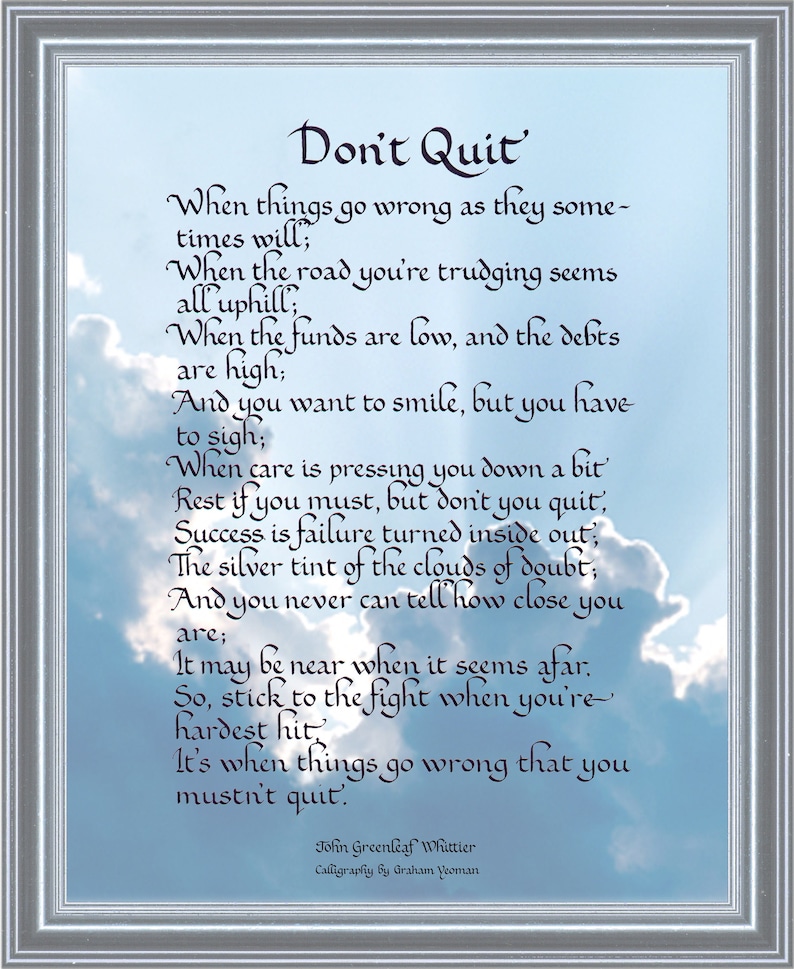 Don't Quit
When things go wrong as they some-
times will;
When the road you're trudging seems
all uphill;
When the funds are low, and the debts
are high;
And you want to smile, but you have
to sigh;
When care is pressing you down a bit
Rest if you must, but don't you quit,
Success is failure turned inside out;
The silver tint of the clouds of doubt;
And you never can tell how close you
are;
It may be near when it seems afar.
So, stick to the fight when you're
hardest hit,
It's when things go wrong that you
mustn't quit.
John Greenleaf Whittier
Calligraphy by Graham Yeoman